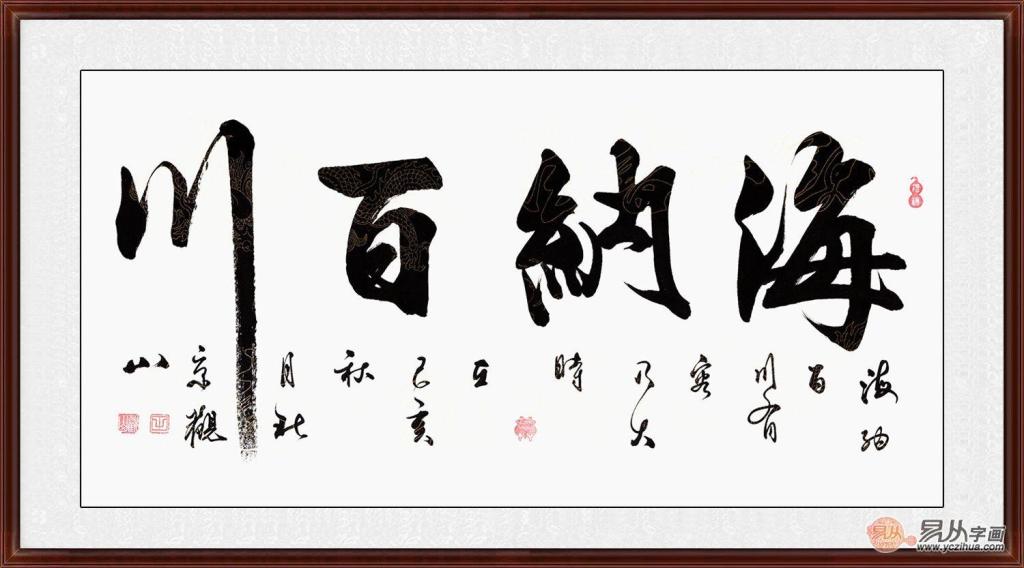 海納百川
海納
百
川有
容
乃大
時
在
己亥
秋
月於
京觀
山
易从
易从字画
www.yczihua.com